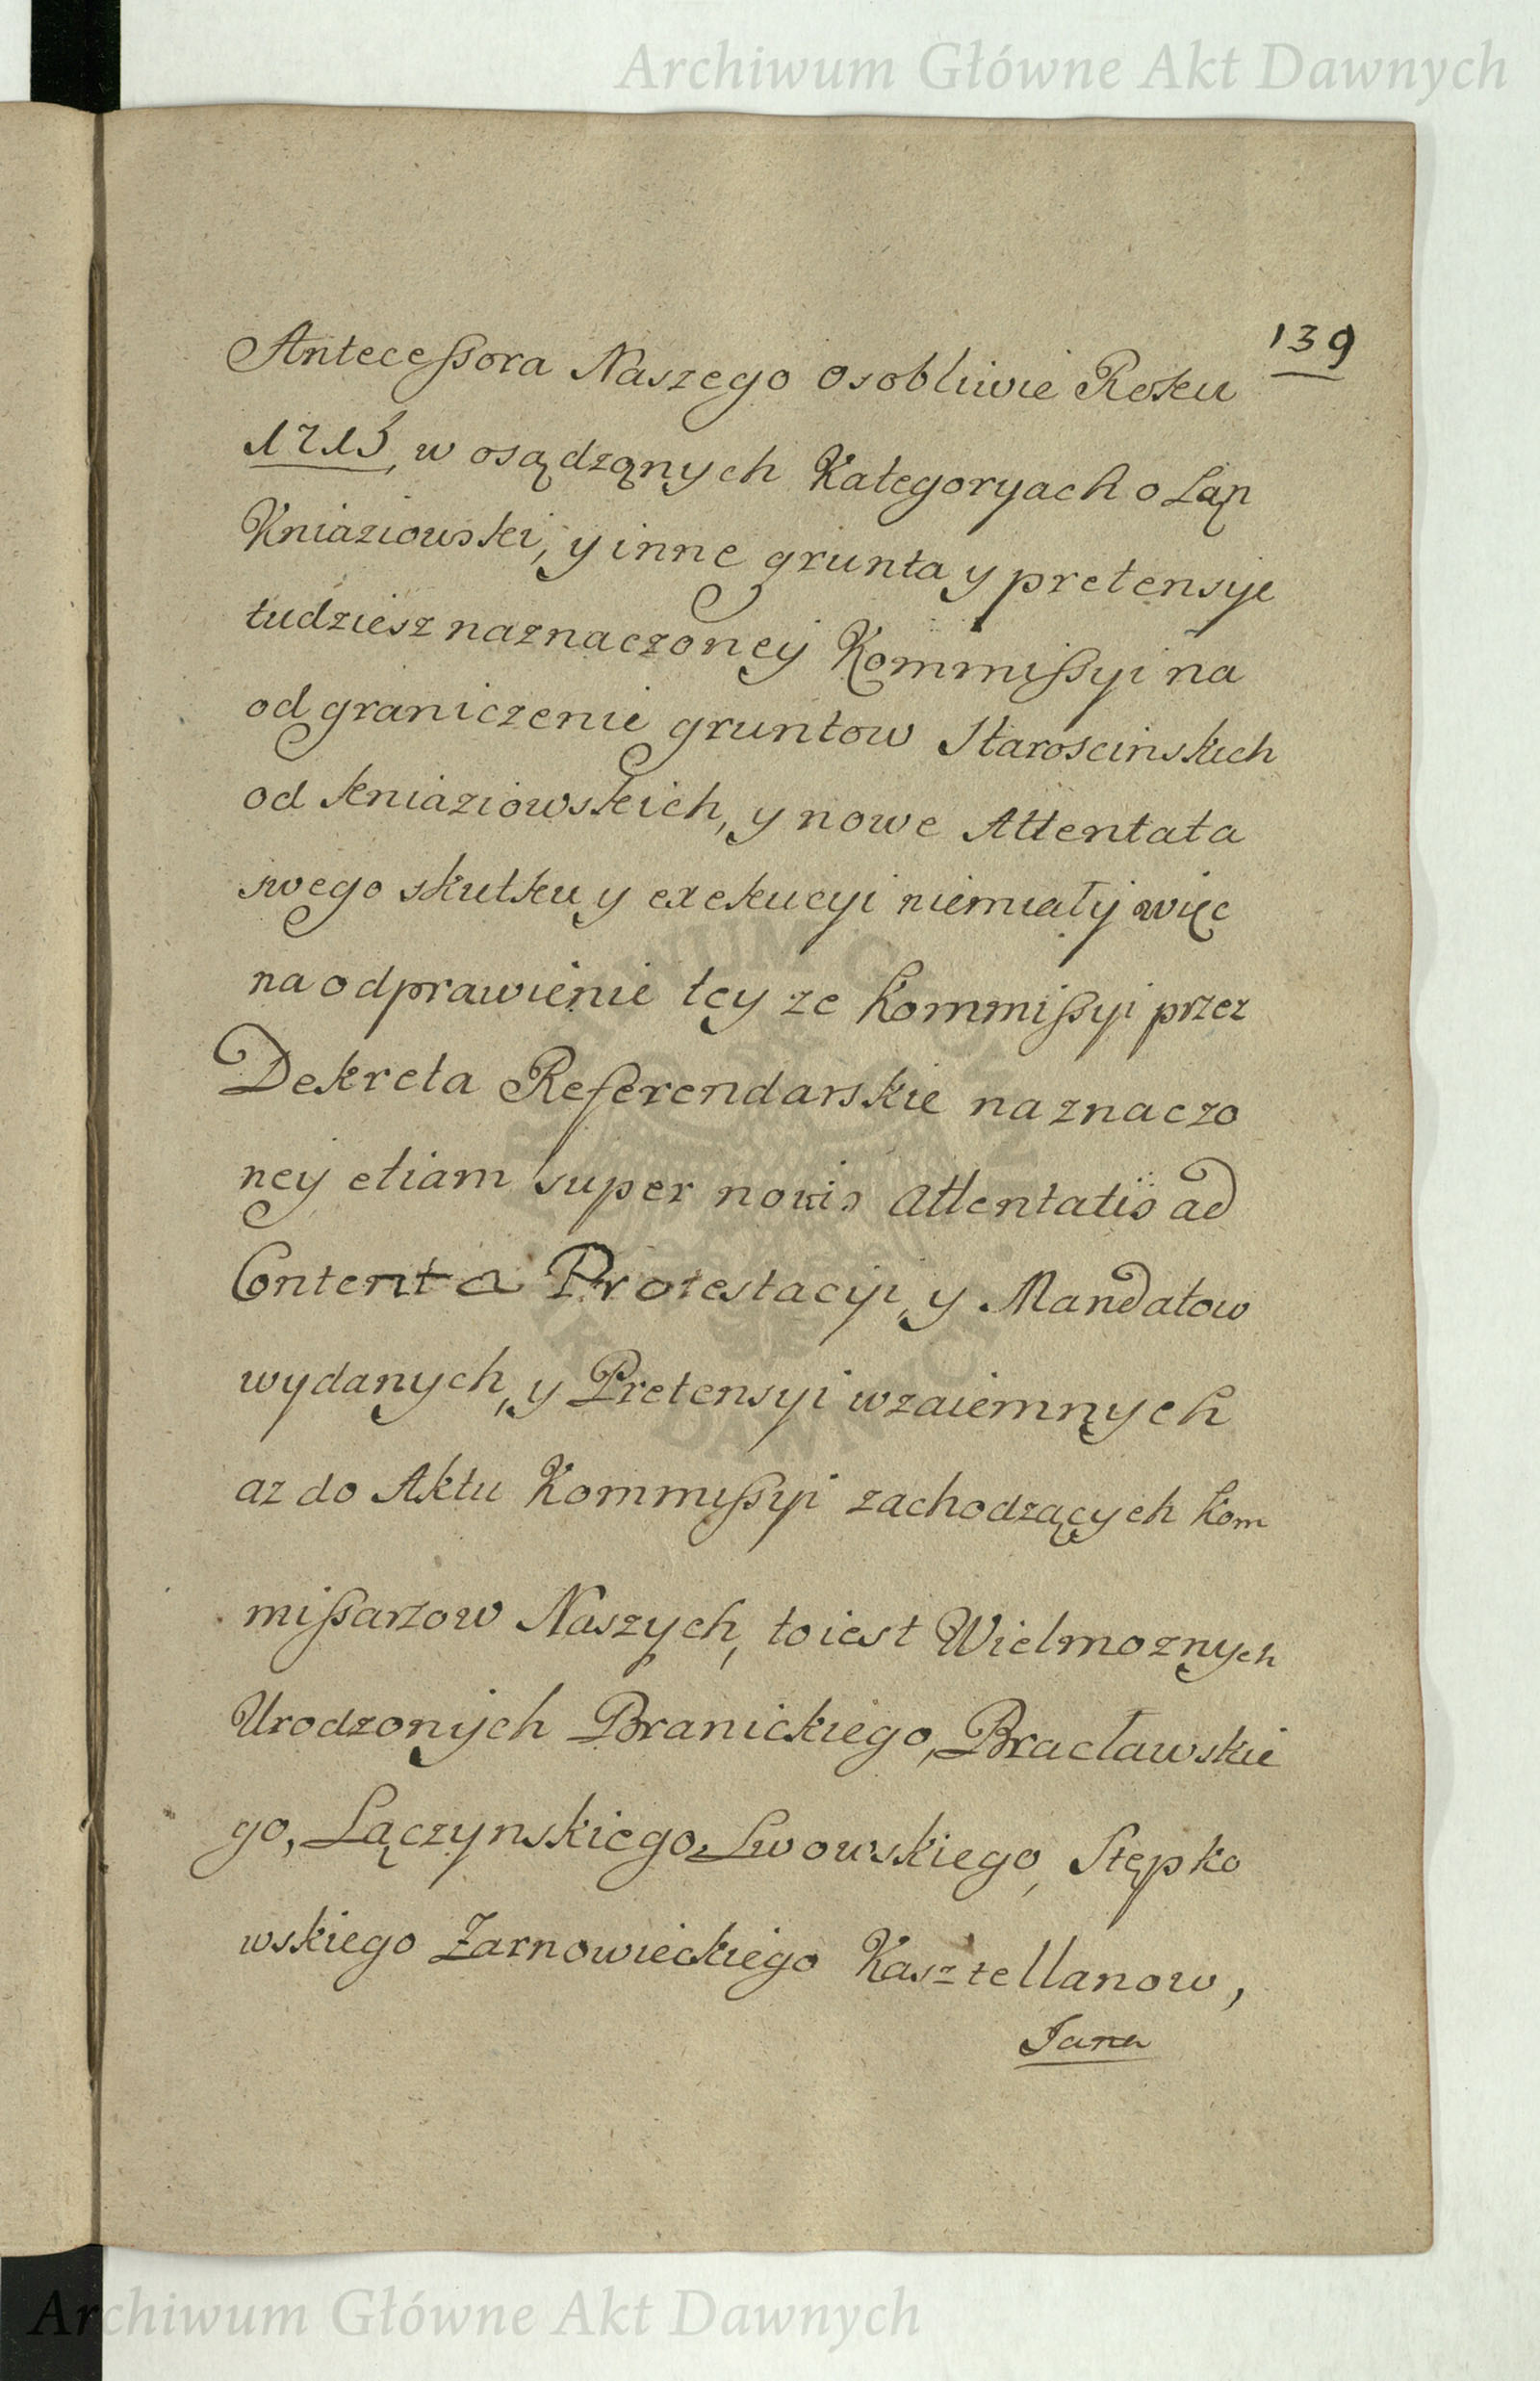 Archiwum Główne Akt Dawnych
139
Antecessora Naszego osobliwie Roku
1713, w osądzonych Kategoryach o Łan
Kniaziowski, y inne grunta y pretensye
tudziesz naznaczoney Kommissyi na
od graniczenie gruntow Staroscinskich
od kniaziowskich, y nowe Attentata
swego skutku y exekucyi niemiały więc
na odprawienie tey ze Kommissyi przez
Dekreta Referendarskie naznaczo
ney etiam super novis attentatis ad
Contenta Protestacyi, y Mandatow
wydanych, y Pretensyi wzaiemnych
az do Aktu Kommissyi zachodzących Kom
missarzow Naszych, to iest Wielmoznych
Urodzonych Branickiego, Bracławskie
go, Łączynskiego Lwowskiego, Stępko
wskiego Zarnowieckiego Kasztellanow,
Jana
Archiwum Główne Akt Dawnych